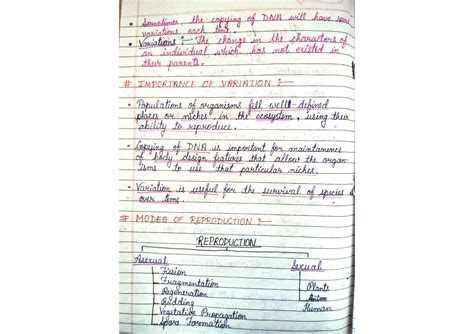 • Sometimes, the copying of DNA will have some
variations each time.
• Variations :- The change in the characters of
an individual which has not existed in
their parents.
# IMPORTANCE OF VARIATION :-
• Populations of organisms fill well-defined
places or niches in the ecosystem, using their
ability to reproduce.
• Copying of DNA is important for maintainences
of body design features that allow the organ-
isms to use that particular niches.
• Variation is useful for the survival of species
over time.
# MODES OF REPRODUCTION :-
REPRODUCTION
Asexual Sexual
Fission
Fragmentation
Regeneration
Budding
Vegetative Propagation
Spore Formation
Plants
Human